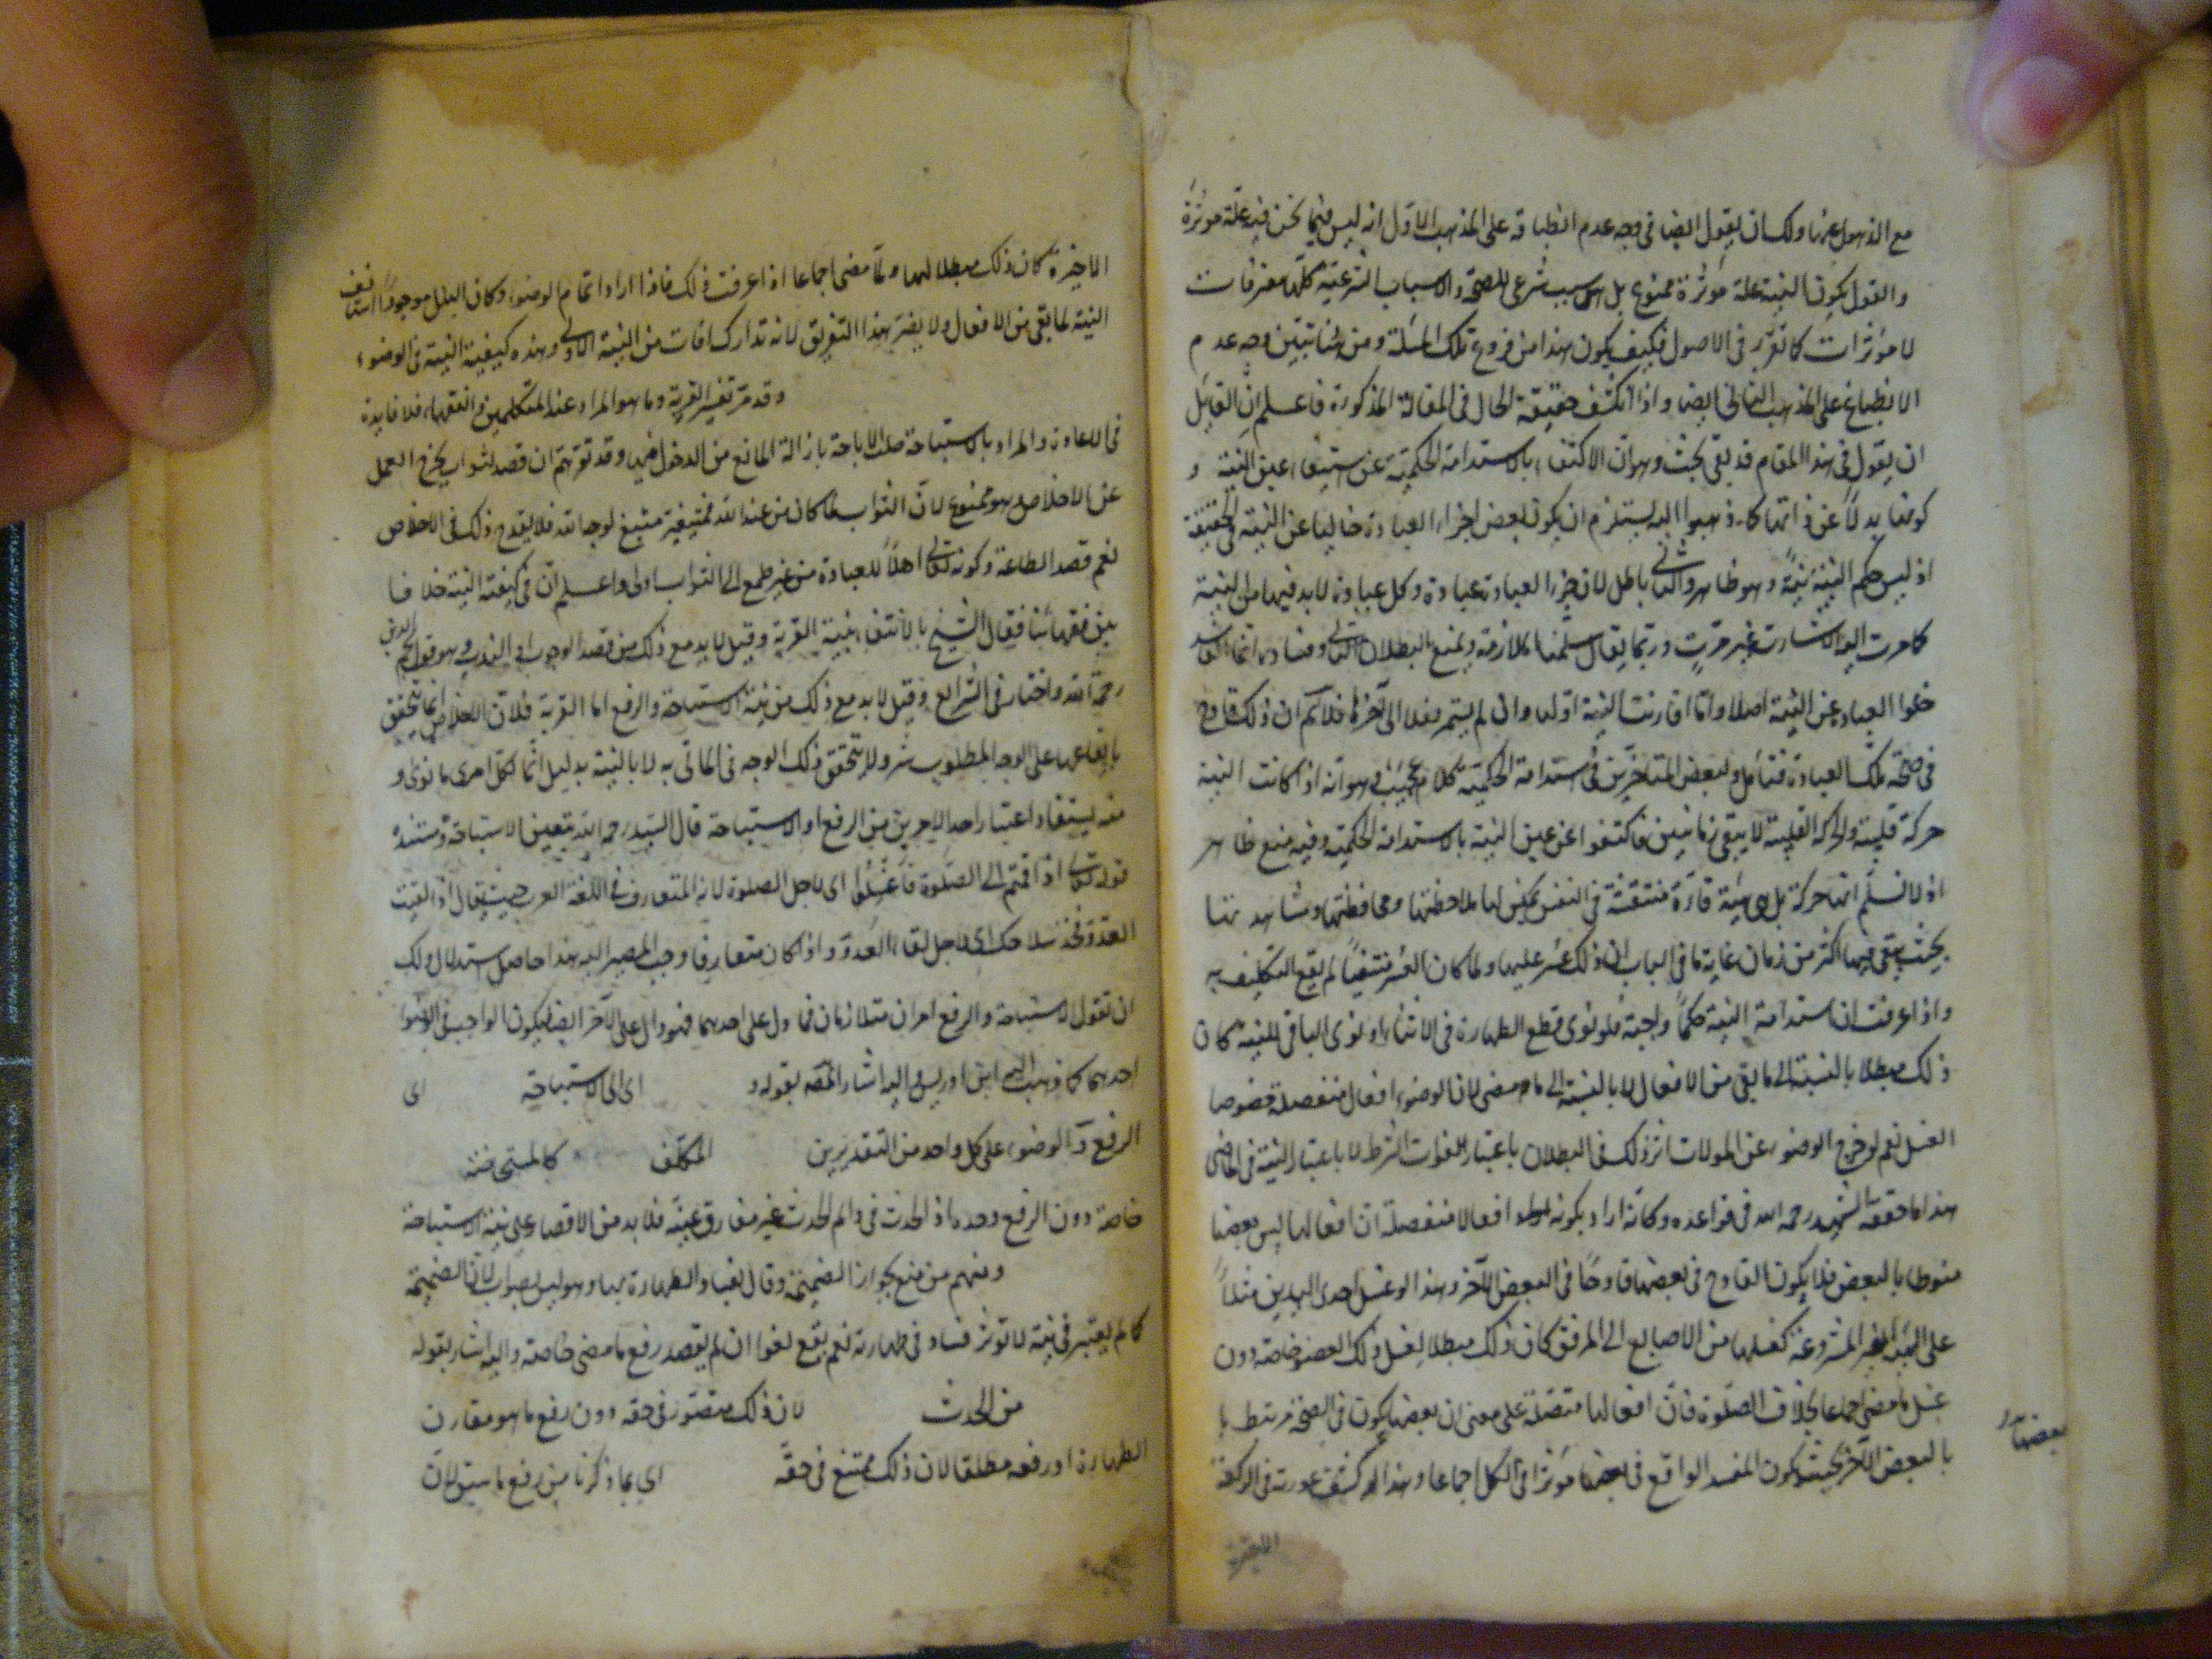 مع الذهول عنها ولك ان يقول ايضا فى وجه عدم انطباقه على المذهب الاول انه ليس فيما نحن فيه علة مؤثرة
والقول بكون النية علة مؤثرة ممنوع بل هى سبب شرعى للصحة والاسباب الشرعية كلها معرفات
لا مؤثرات كما تقرر فى الاصول فكيف يكون هذا من فروع تلك المسئلة ومن هنا تبين وجه عدم
الانطباع على المذهب الثانى ايضا واذا انكشف حقيقة الحال فى المقالة المذكورة فاعلم ان القايل
ان يقول فى هذا المقام قد بقى بحث وهو ان الاكتفاء بالاستدامة الحكمية عن استيفاء عين النية و
كونها بدلا عن ذاتها كما ذهبوا اليه يستلزم ان يكون بعض اجزاء العبادة خاليا عن النية فى الحقيقة
اذ ليس حكم النية نية وهو ظاهر والثانى باطل لان جزء العبادة عبادة وكل عبادة لا بد فيها من النية
كما مرت اليه الاشارة غير مرة وربما يقال سلمنا الملازمة ونمنع البطلان
خلوا العبادة عن النية اصلا واما اذا قارنت النية اولها وان لم يستمر فعلا الى آخرها فلا نم ان ذلك قادح
فى صحة تلك العبادة فتامل ولبعض المتاخرين فى استدامة الحكمية كلام عجيب وهو انه اذا كانت النية
حركة قلبية والحركة القلبية لا يبقى زمانين فاكتفوا عن عين النية بالاستدامة الحكمية وفيه منع ظاهر
اذ لا نسلم انها حركة بل هى هيئة قارة منتقشة فى النفس يمكن لها ملاحظتها ومحافظتها ومشاهدتها
بحيث يبقى فيها اكثر من زمان غاية ما فى الباب ان ذلك عسر عليها ولما كان العسر منتفيا لم يقع التكليف به
واذا عرفت ان استدامة النية حكما واجبة فلو نوى قطع الطهارة فى الاثناء او نوى المنافى للنية كان
ذلك مبطلا بالنسبة الى ما بقى من الافعال لا بالنسبة الى ما مضى لان الوضوء افعال منفصلة خصوصا
الغسل نعم لو خرج الوضوء عن الموالات اثر ذلك فى البطلان باعتبار لفوات الشرط لا باعتبار النية فى الماضى
هذا ما حققه الشهيد رحمه الله فى قواعده وكانه اراد بكونه افعالا منفصلة ان افعالها ليس بعضها
منوطا بالبعض فلا يكون القادح فى بعضها قادحا فى البعض الآخر ولهذا لو غسل احدى اليدين مثلا
على الهيئة الغير المشروعة كغسلها من الاصابع الى المرفق كان ذلك مبطلا لغسل ذلك العضو خاصة دون
غسل ما مضى اجماعا بخلاف الصلوة فان افعالها متصلة على معنى ان بعضها يكون فى الصحة مرتبطا
بعضها
بالبعض الآخر بحيث يكون المفسد الواقع فى بعضها مؤثرا فى الكل اجماعا ولهذا لو كشف عورته فى الركعة
الاخيرة
الاخيرة كان ذلك مبطلا لها ولما مضى اجماعا اذا عرفت ذلك فاذا اراد اتمام الوضوء وكان البلل موجودا استانف
النية لما بقى من الافعال ولا يضر بهذا التفريق لانه تدارك ما فات من النية الاولى وهذه كيفية النية فى الوضوء
وقد مر تفسير القربة وما هو المراد عند المتكلمين والفقهاء فلا فايدة
فى الاعادة والمراد بالاستباحة طلب الاباحة بازالة المانع من الدخول فيها وقد توهم ان قصد الثواب يخرج العمل
عن الاخلاص وهو ممنوع لان الثواب لما كان من عند الله فمبتغيه مبتغ لوجه الله فلا يقدح ذلك فى الاخلاص
نعم قصد الطاعة وكونه تعالى اهلا للعبادة من غير طمع الى الثواب اولى واعلم ان فى كيفية النية خلافا
بين فقهائنا فقال الشيخ بالاكتفاء بنية القربة وقيل لا بد مع ذلك من قصد الوجوب او الندب وهو قول نجم الدين
رحمه الله واختاره فى الشرايع وقيل لا بد مع ذلك من نية الاستباحة والرفع اما القربة فلان الاخلاص انما يتحقق
بايقاعها على الوجه المطلوب شرعا ولا يتحقق ذلك الوجه فى الماتى به الا بالنية بدليل انما لكل امرى ما نوى و
منه يستفاد اعتبار احد الامرين من الرفع او الاستباحة قال السيد رحمه الله بتعين الاستباحة ومستنده
قوله تعالى اذا قمتم الى الصلوة فاغسلوا اى لاجل الصلوة لانه المتعارف فى اللغة العرب حيث يقال اذا لقيت
العدو فخذ سلاحك اى لاجل لقاء العدو واذا كان متعارفا وجب المصير اليه هذا حاصل استدلاله ولك
ان تقول الاستباحة والرفع امران متلازمان فما دل على احدهما فهو دال على الآخر ايضا فيكون الواجب فى الوضوء
احدهما كما ذهب اليه ابن ادريس واليه اشار المصه بقوله و اى الى الاستباحة اى
الرفع و الوضوء على كل واحد من التقديرين المكلف كالمستحاضة
خاصة دون الرفع وحده اذ الحدث فى دايم الحدث غير مفارق عينه فلا بد من الاقتصار على نية الاستباحة
ومنهم من منع بجواز الضميمة وقال بفساد الطهارة بها وهو ليس بصواب لان الضميمة
كما لم يعتبر فى نية لا تؤثر فسادا فى طهارته نعم يقع لغوا ان لم يقصد رفع ما مضى خاصة واليه اشار بقوله
من الحدث لان ذلك متصور فى حقه دون رفع ما هو مقارن
الطهارة او رفعه مطلقا لان ذلك ممتنع فى حقه اى بما ذكرنا من رفع ما سبق لان